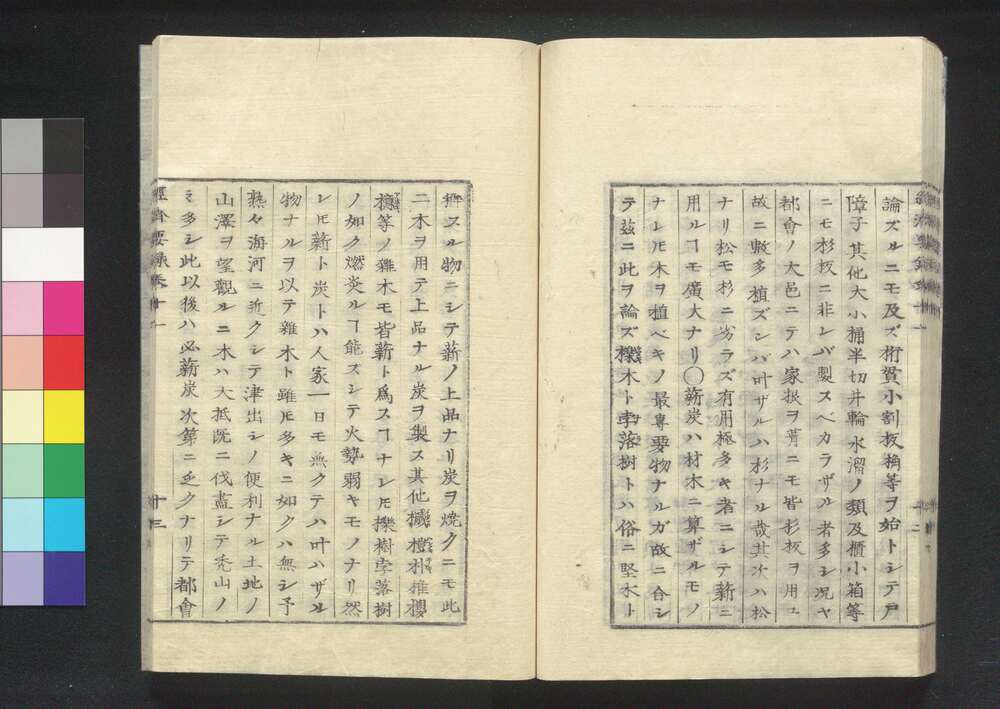 論ズルニモ及ズ桁貫小割板桷等ヲ始トシテ戸
障子其他大小桶半切井輪水溜ノ類及櫃小箱等
ニモ杉板ニ非レバ製スベカラザル者多シ况ヤ
都會ノ大邑ニテハ家根ヲ葺ニモ皆杉板ヲ用ユ
故ニ數多植ズンバ叶ザルハ杉ナル哉其次ハ松
ナリ松モ杉ニ劣ラズ有用極多キ者ニシテ薪ニ
用ルヿモ廣大ナリ〇薪炭ハ材木ニ算ザルモノ
ナレㇳモ木ヲ植ベキノ最專要物ナルガ故ニ合シ
テ茲ニ此ヲ論ズ櫟木ト孛落樹トハ俗ニ堅木ト
稱スル物ニシテ薪ノ上品ナリ炭ヲ燒クニモ此
二木ヲ用テ上品ナル炭ヲ製ス其他櫧樫朴椎櫻
樗等ノ雜木モ皆薪ト爲スヿナレㇳモ櫟樹孛落樹
ノ如ク燃炎ルヿ能ズシテ火勢弱キモノナリ然
レㇳモ薪ト炭トハ人家一日モ無クテハ叶ハザル
物ナルヲ以テ雜木ト雖ㇳモ多キニ如クハ無シ予
熟々海河ニ近クシテ津出シノ便利ナル土地ノ
山澤ヲ望觀ルニ木ハ大抵既ニ伐盡シテ禿山ノ
ミ多シ此以後ハ必薪炭次第ニ乏クナリテ都會
經濟要錄卷十一
十三